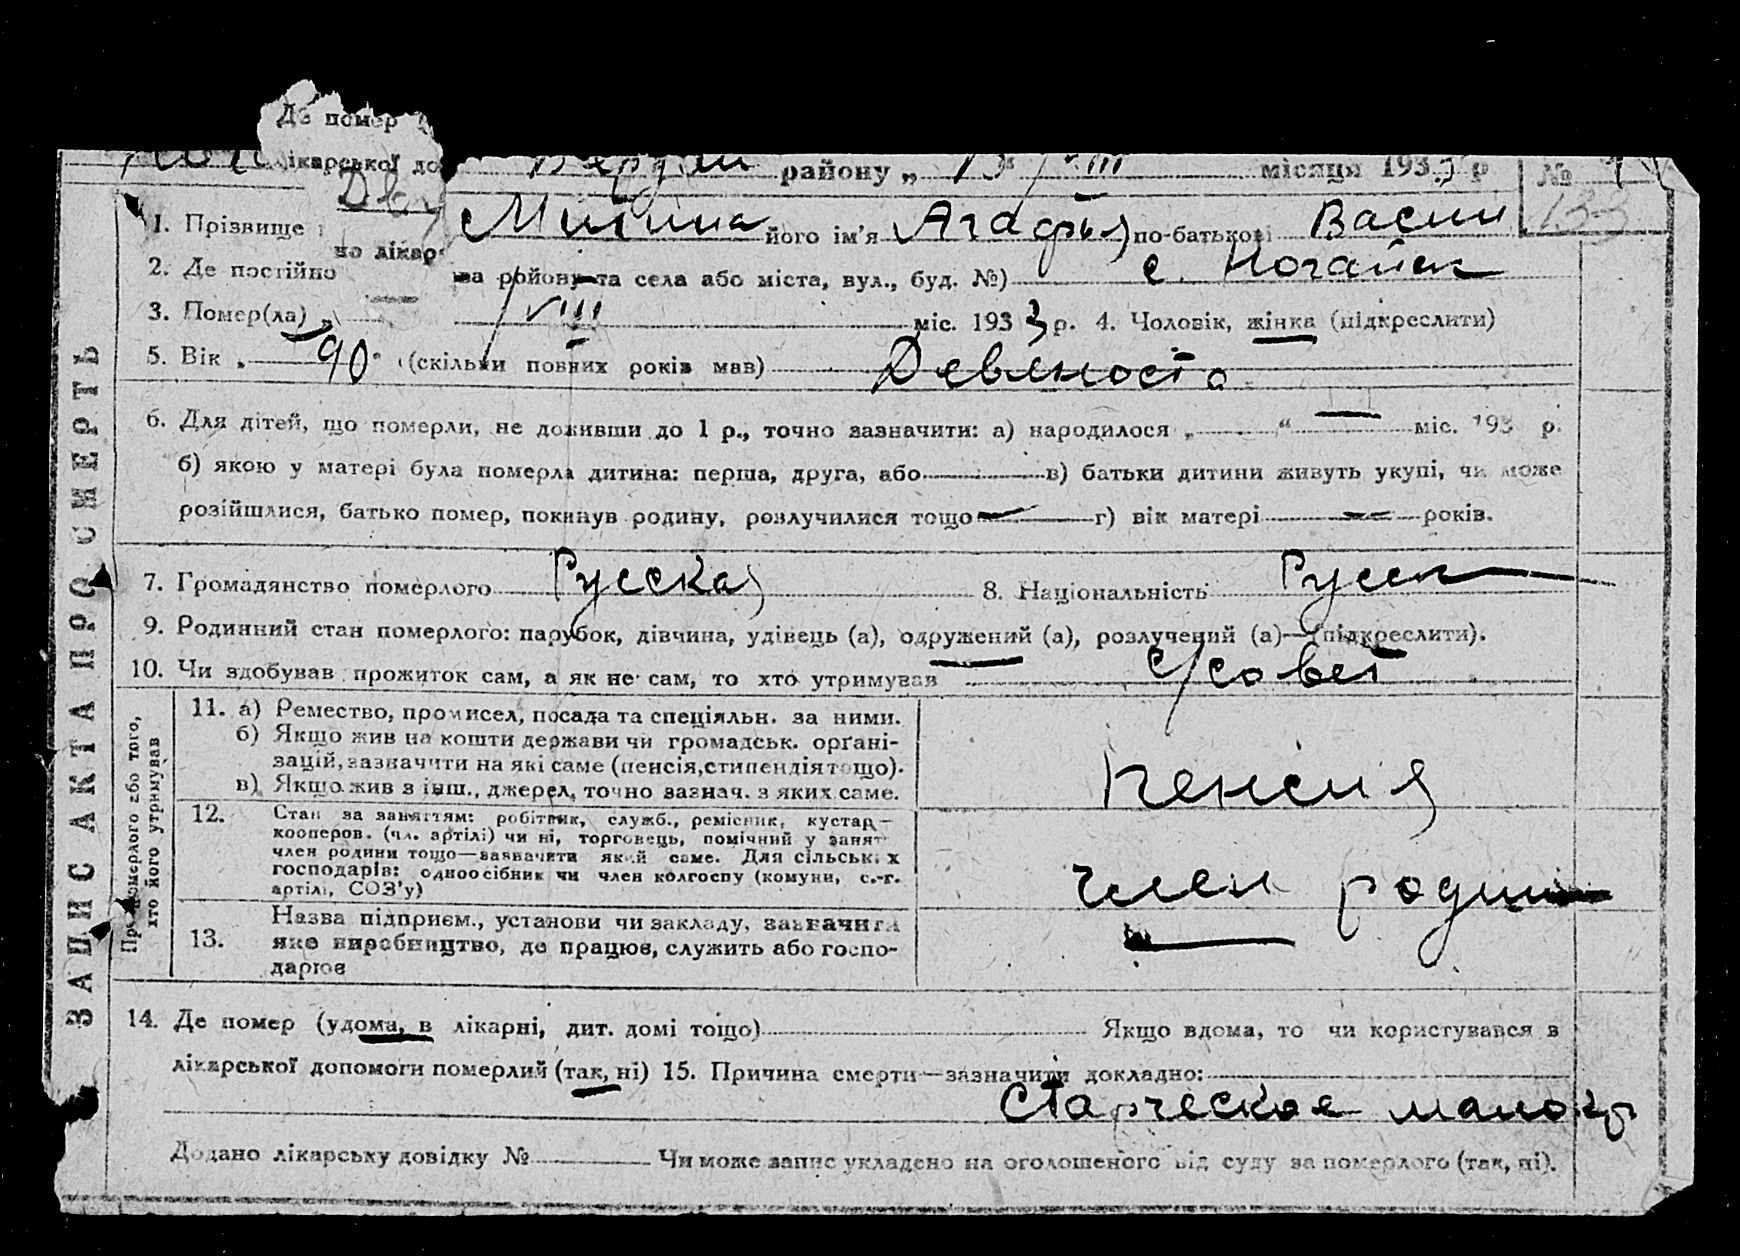 Де помер
лікарської до
району „ 13 " VIII місяця 1933 р № 
133
1. Прізвище Митина його ім'я Агафья по-батькові Васил
но лікар
2. Де постійно ва району та села або міста, вул., буд. №) с. Ногайск
3. Помер(ла) „ VIII міс. 1933 р. 4. Чоловік, жінка (підкреслити)
5. Вік „ 90 " (скільки повних років мав) Девяносто
6. Для дітей, що померли, не доживши до 1 р., точно зазначити: а) народилося „ “ міс. 193 р.
б) якою у матері була померла дитина: перша, друга, або в) батьки дитини живуть укупі, чи може
розійшлися, батько помер, покинув родину, розлучилися тощо г) вік матері років.
7. Громадянство померлого Русская 8. Національність Русск
9. Родинний стан померлого: парубок, дівчина, удівець (а), одружений (а), розлучений (а)—(підкреслити).
10. Чи здобував прожиток сам, а як не сам, то хто утримував с/совет
ЗАПИС АКТА ПРО СМЕРТЬ
Про померлого або того,
хто його утримував
11. а) Ремество, промисел, посада та спеціяльн. за ними.
б) Якщо жив на кошти держави чи громадськ. орґані-
зацій, зазначити на які саме (пенсія, стипендія тощо).
в) Якщо жив з інш., джерел, точно зазнач. з яких саме.
Пенсия
12. Стан за заняттям: робітник, служб., ремісник, кустар—
кооперов. (чл. артілі) чи ні, торговець, помічний у занят
член родини тощо—зазначити який саме. Для сільських
господарів: одноосібник чи член колгоспу (комуни, с.-г.
артілі, СОЗ'у)
член родини
13. Назва підприєм., установи чи закладу, зазначити
яке виробництво, де працює, служить або госпо-
дарює
14. Де помер (удома, в лікарні, дит. домі тощо) Якщо вдома, то чи користувався в
лікарської допомоги померлий (так, ні) 15. Причина смерти—зазначити докладно:
Старческое малокр
Додано лікарську довідку № Чи може запис укладено на оголошеного від суду за померлого (так, ні).